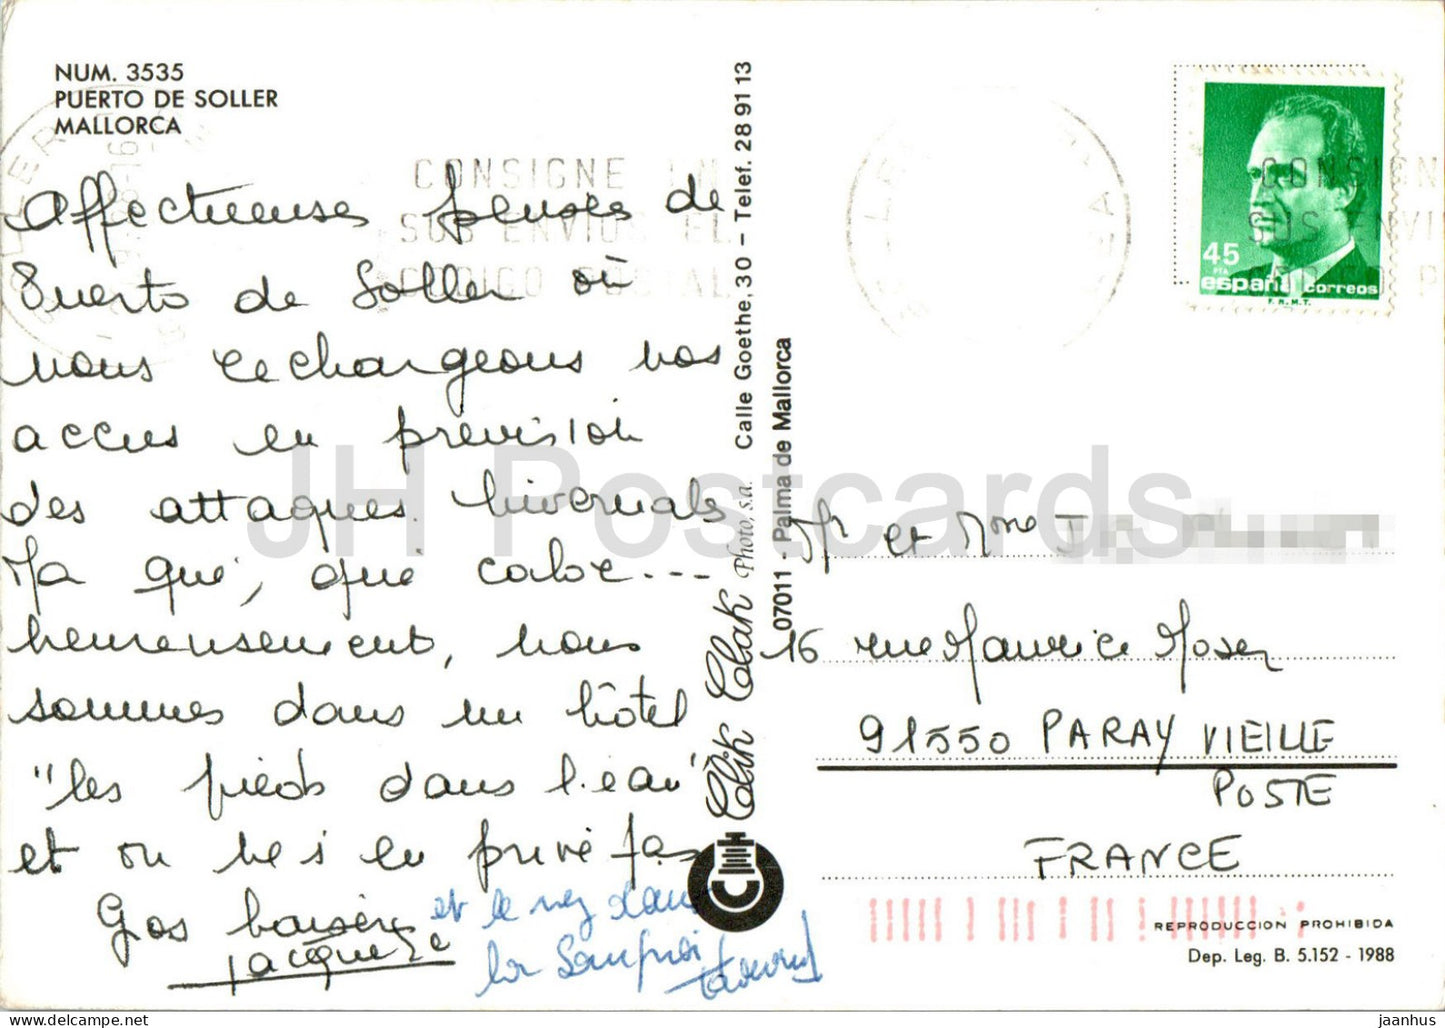 NUM. 3535
PUERTO DE SOLLER
MALLORCA
CONSIGNE EN
SUS ENVIOS EL
CODIGO POSTAL
Affectueuses pensées de
Puerto de Soller où
nous rechargeons nos
accus en prevision
des attaques hivernales
Ma qué, qué calor...
heureusement, nous
sommes dans un hôtel
"les pieds dans l'eau"
et on ne s'en prive pas
Gros baisers
Jacqueline
et le nez dans
la
Clik Clak Photo, s.a. Calle Goethe, 30 - Telef. 28 91 13
07011 - Palma de Mallorca
45
PTA
españa correos
F.N.M.T.
CONSIGN
SUS ENVI
CODIGO P
Mr et Mme
16 rue Maurice Moser
91550 PARAY VIEILLE
POSTE
FRANCE
REPRODUCCION PROHIBIDA
Dep. Leg. B. 5.152 - 1988
JH Postcards
delcampe.net
jaanhus